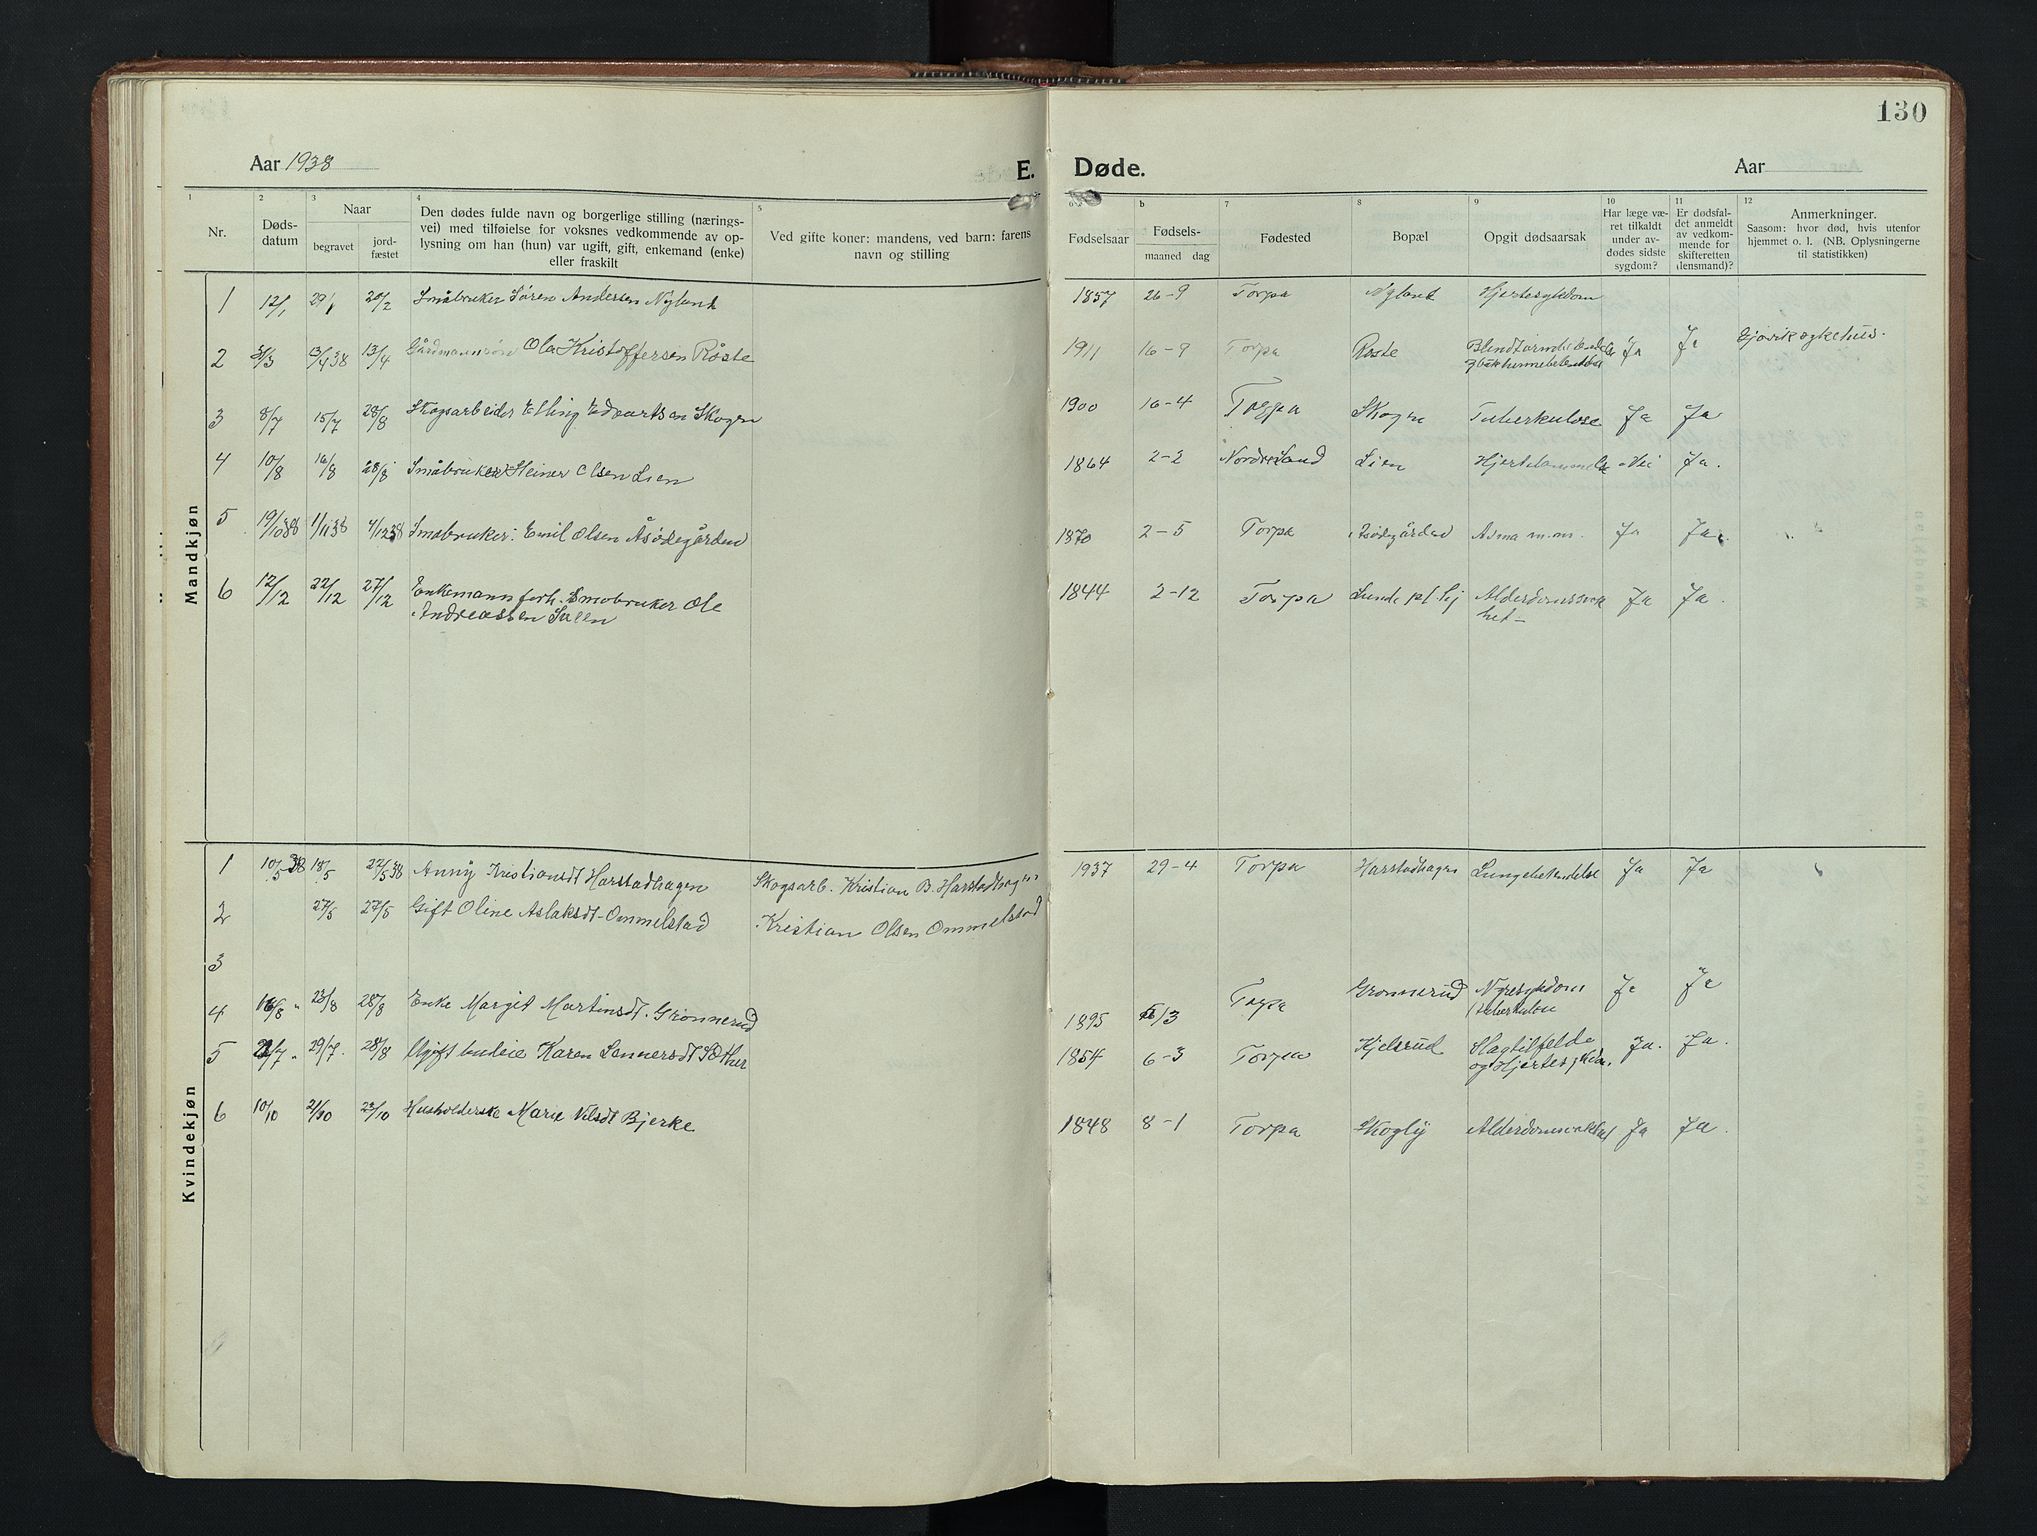 130
Aar 1938
E. Døde.
Aar
1 2 3 4 5 6 b 7 8 9 10 11 12
Nr.
Døds-
datum
Naar
begravet
jord-
fæstet
Den dødes fulde navn og borgerlige stilling (nærings-
vei) med tilføielse for voksnes vedkommende av op-
lysning om han (hun) var ugift, gift, enkemand (enke)
eller fraskilt
Ved gifte koner: mandens, ved barn: farens
navn og stilling
Fødselsaar
Fødsels-
maaned dag
Fødested
Bopæl
Opgit dødsaarsak
Har læge væ-
ret tilkaldt
under av-
dødes sidste
sygdom?
Er dødsfal-
det anmeldt
av vedkom-
mende for
skifteretten
(lensmand)?
Anmerkninger.
Saasom: hvor død, hvis utenfor
hjemmet o. l. (NB. Oplysningerne
til statistikken)
Mandkjøn
1 12/1 29/1 20/2 Småbruker Søren Andersen Nyland 1857 26-9 Torpa Nyland Hjertesykdom
2 31/3 13/4 38 13/4 Gårdmannssøn Ola Kristoffersen Røste 1911 16-9 Torpa Røste Blindtarmbetendelse Ja Ja Gjøvik sykehus.
og bukhinnebetendelse
3 8/7 15/7 28/8 Skogsarbeider Elling Edvartsen Skogen 1900 16-4 Torpa Skogen Tuberkulose Ja Ja
4 10/8 16/8 28/8 Småbruker Steiner Olsen Lien 1864 2-2 Nordre Land Lien Hjertelammelse Nei Ja.
5 19/10 38 1/11 38 4/12 38 Småbruker: Emil Olsen Åsødegården 1870 2-5 Torpa Åsødegården Asma m.m. Ja Ja.
6 12/12 22/12 27/12 Enkemann forh. Småbruker Ole 1844 2-12 Torpa Lunde pl.hj Alderdomssvak Ja Ja.
Andreassen Sveen het-
Kvindekjøn
1 10/5 38 18/5 22/5 38 Anny Kristiansdt Harstadhagen Skogsarb. Kristian B. Harstadhagen 1937 29-4 Torpa Harstadhagen Lungebetendelse Ja Ja
2 27/5 27/5 Gift Oline Aslaksdt-Ommelstad Kristian Olsen Ommelstad
3
4 16/8 " 23/8 28/8 Enke Margit Martinsdt. Grønnerud 1895 /3 Torpa Grønnerud Nyresykdom Ja Ja
(tuberkuløse
5 /7 " 29/7. 28/8 Ugift budeie Karen Lennersdt Sæther 1854 6-3 Torpa Kjelsrud Slagtilfelde Ja. Ja.
og Hjertesykdom.
6 10/10 /10 /10 Husholderske Marie Nilsdt Bjerke 1848 8-1 Torpa Skogly Alderdomssvakhet Ja Ja.